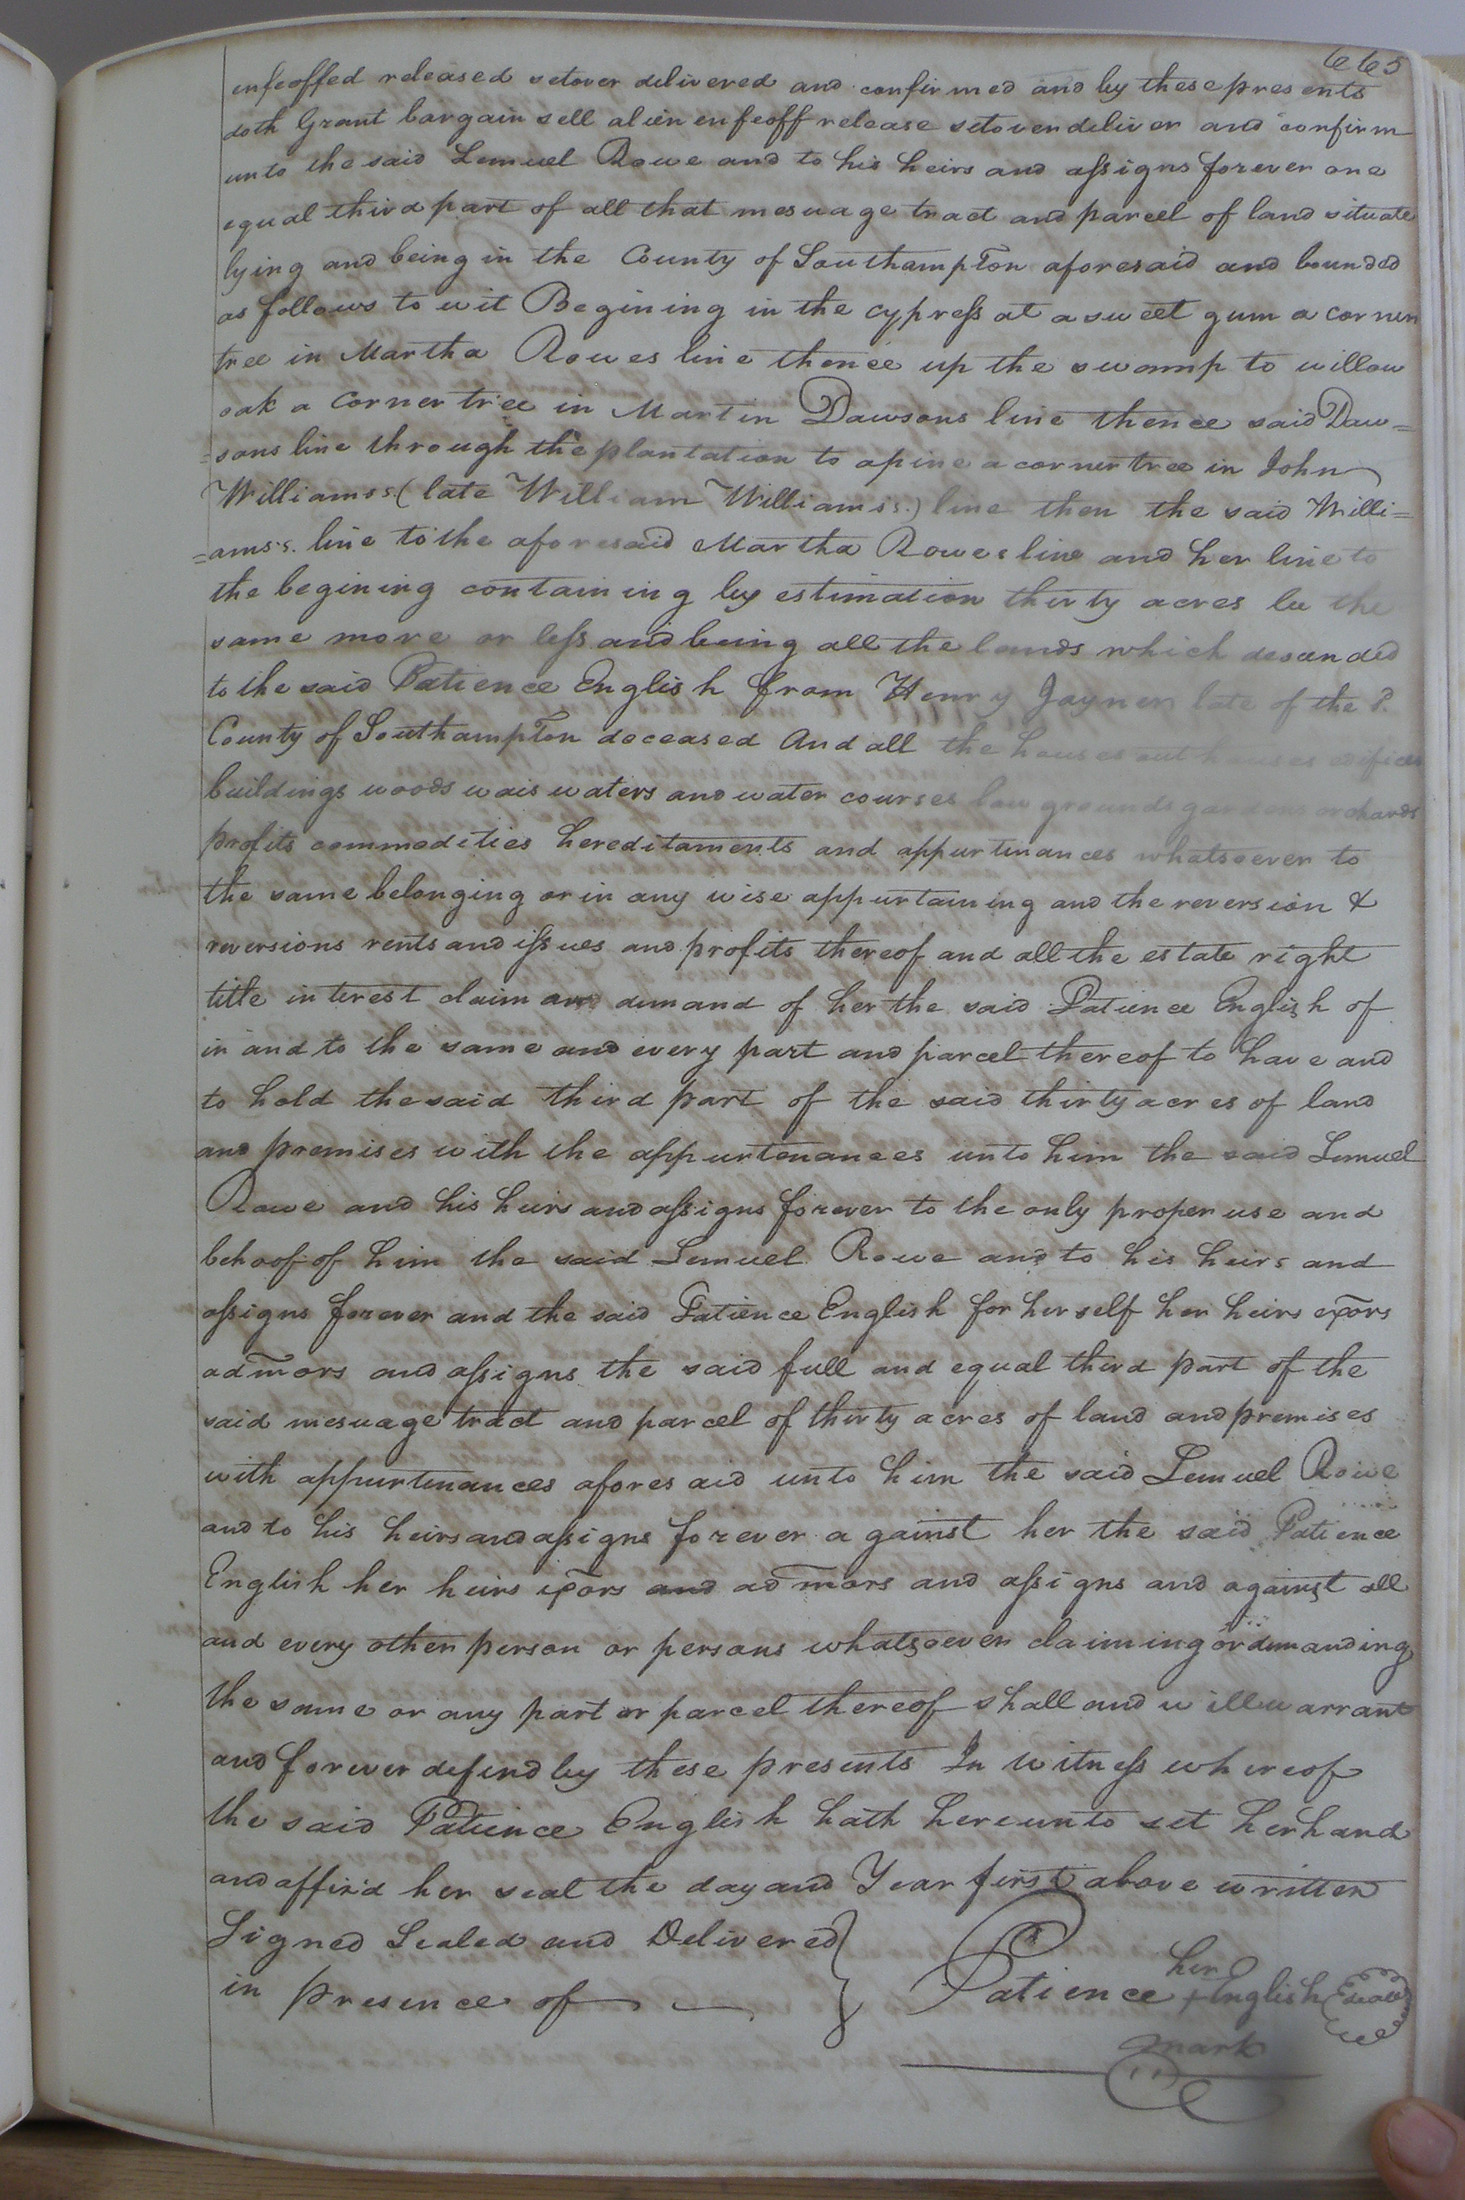 665
enfeoffed released setover delivered and confirmed and by these presents
doth Grant bargain sell alien enfeoff release setover deliver and confirm
unto the said Lemuel Rowe and to his heirs and assigns forever one
equal third part of all that mesuage tract and parcel of land situate
lying and being in the County of Southampton aforesaid and bounded
as follows to wit Begining in the cypress at a sweet gum a corner
tree in Martha Rowes line thence up the swamp to willow
oak a corner tree in Martin Dawsons line thence said Daw=
=sons line through the plantation to a pine a corner tree in John
Williams's (late William Williams's.) line then the said Willi=
=ams's. line to the aforesaid Martha Rowes line and her line to
the begining containing by estimation thirty acres be the
same more or less and being all the lands which desended
to the said Patience English from Henry Joyner late of the sd.
County of Southampton deceased And all the houses out houses edifices
buildings woods wais waters and water courses low grounds gardens orchards
profits commodities hereditaments and appurtinances whatsoever to
the same belonging or in any wise appurtaining and the reversion &
reversions rents and issues and profits thereof and all the estate right
title interest claim and demand of her the said Patience English of
in and to the same and every part and parcel thereof to have and
to hold the said third part of the said thirty acres of land
and premises with the appurtenances unto him the said Lemuel
Rowe and his heirs and assigns forever to the only proper use and
behoof of him the said Lemuel Rowe and to his heirs and
assigns forever and the said Patience English for herself her heirs exors
admors and assigns the said full and equal third part of the
said mesuage tract and parcel of thirty acres of land and premises
with appurtenances aforesaid unto him the said Lemuel Rowe
and to his heirs and assigns forever against her the said Patience
English her heirs exors and admors and assigns and against all
and every other person or persons whatsoever claiming or demanding
the same or any part or parcel thereof shall and will warrant
and forever defend by these presents In witness whereof
the said Patience English hath hereunto set her hand
and affix'd her seal the day and Year first above written
Signed Sealed and Delivered
in presence of
her
Patience + English Seal
mark